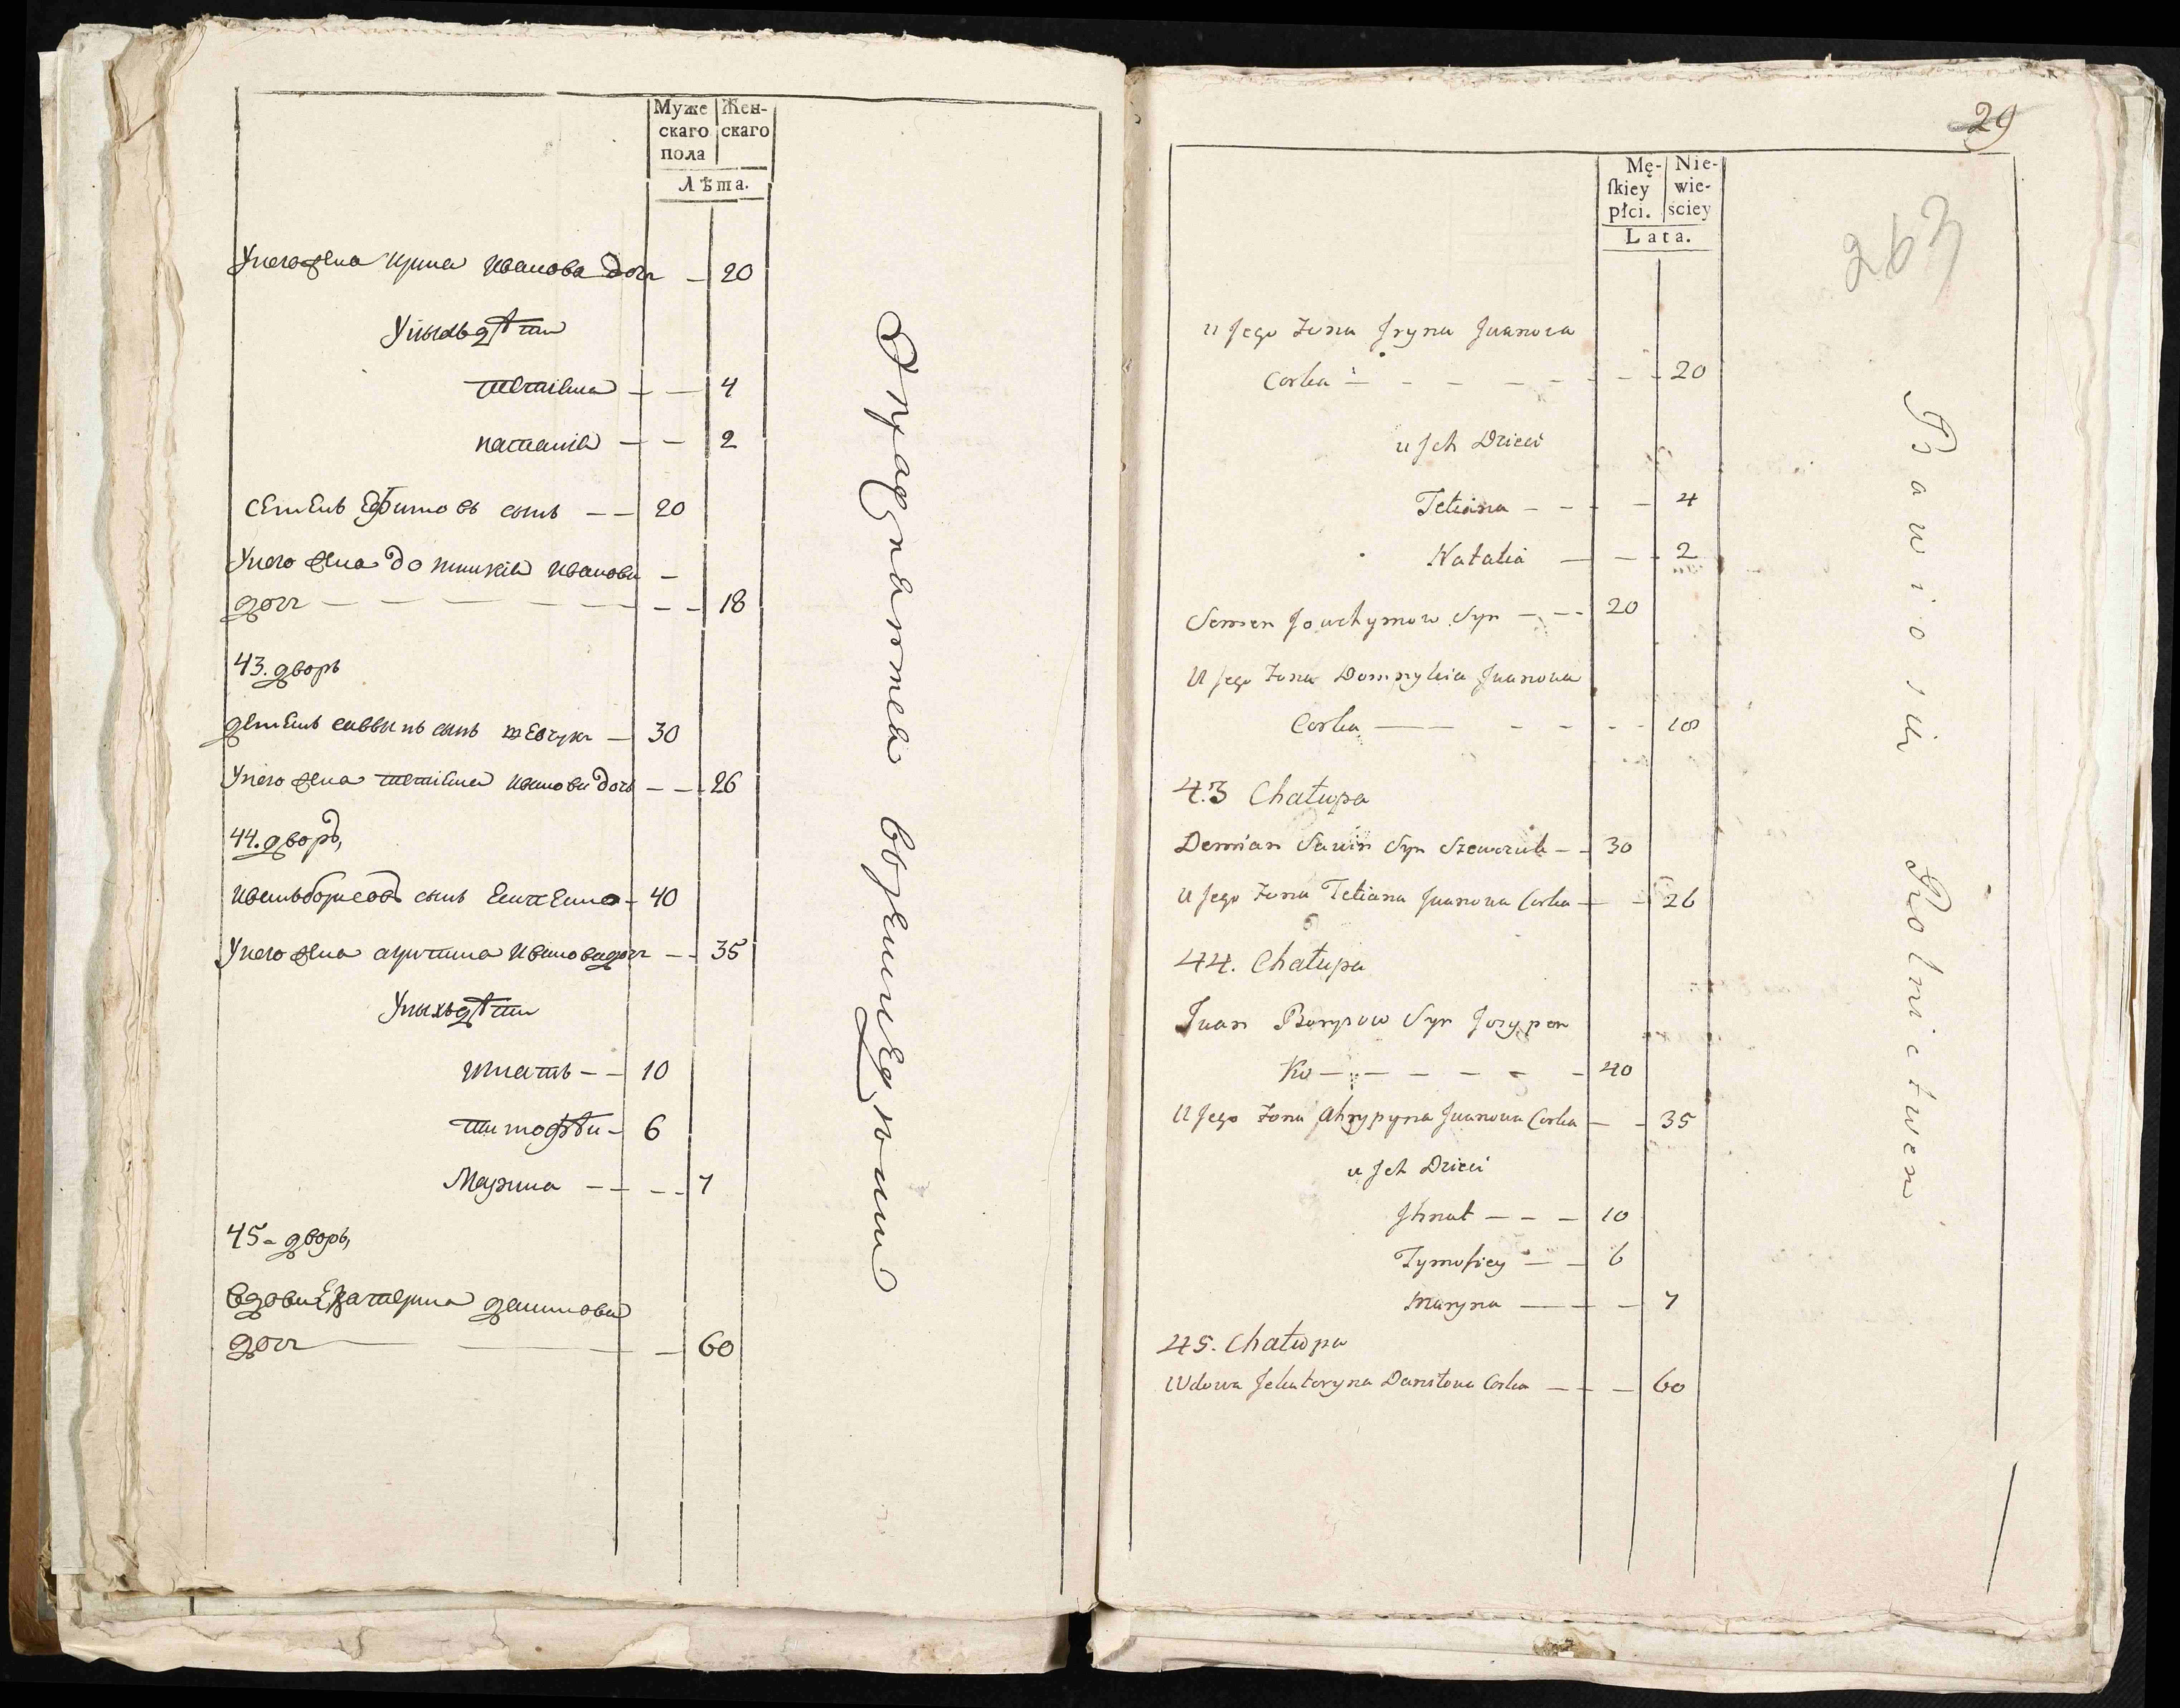 Муже скаго пола
Жен- скаго
Лѣта.
У него жена Ирина Иванова дочь — 20
У ныхъ дѣти
Тетиана — — 4
Наталія — — 2
Семенъ Ефимовъ сынъ — — 20
У него жена Домникія Иванова —
дочь — — — — — — — 18
43. дворъ
Деменъ Саввинъ сынъ Шевчукъ — 30
У него жена Тетиана Иванова дочь — — 26
44. дворъ,
Иванъ Борисовъ сынъ — 40
У него жена Агрипина Иванова дочь — — 35
У ныхъ дѣти
Игнатъ — — 10
Тимофѣй — 6
Марина — — — 7
45 — дворъ,
Вдова Екатерина Данилова
дочь — — — — 60
Упражняется въ земледѣліи
29
263
Mę- ſkiey płci.
Nie- wie- sciey
Lata.
u Jego Żona Jryna Jwanowa
Corka — — — — — — — 20
u Jch Dzieci
Tetiana — — — — 4
Natalia — — — 2
Semen Jowchymow Syn — — — 20
U Jego Żona Domnykia Jwanowa
Corka — — — — — — 18
43 Chałupa
Demian Sawin Syn Szewczuk — — 30
U Jego Żona Tetiana Jwanowa Corka — — 26
44. Chałupa
Jwan Borysow Syn Jozypen
Ko — — — — — — 40
U Jego Żona Ahrypyna Jwanowa Corka — — 35
u Jch Dzieci
Jhnat — — — 10
Tymofiey — — 6
Maryna — — — 7
45. Chałupa
Wdowa Jekateryna Daniłowa Corka — — — 60
Bawio się Rolnictwem